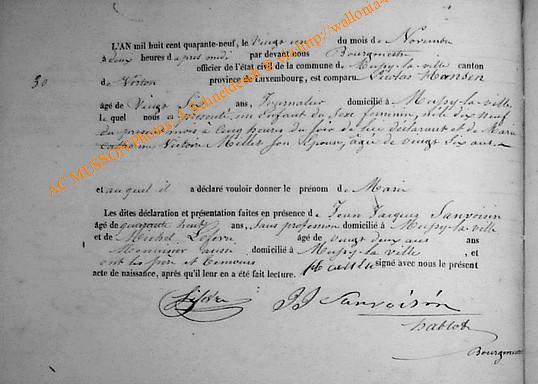 L'AN mil huit cent quarante-neuf, le vingt un du mois de Novembre
à deux heures d'après midi par devant nous Bourgmestre
officier de l'état civil de la commune de Mussy-la-ville canton
30
de Virton province de Luxembourg, est comparu Nicolas Hansen
âgé de vingt six ans, Journalier domicilié à Mussy-la-ville
le quel nous a présenté un Enfant du Sexe féminin, née le dix neuf
du présent mois à cinq heures du soir de lui déclarant et de Marie
Millet son Epouse, âgée de vingt six ans
et au quel il a déclaré vouloir donner le prénom de Marie
Les dites déclaration et présentation faites en présence de Jean Jacques Sanvoisin
âgé de quarante huit ans, Sans profession domicilié à Mussy-la-ville
et de Michel Lefevre âgé de vingt deux ans ans
aussi domicilié à Mussy-la-ville, et
ont les père et témoins signé avec nous le présent
acte de naissance, après qu'il leur en a été fait lecture.
JJ Sanvoisin
Bourgmestre
AC MUSSON Photos A. Schneider http://wallonia-